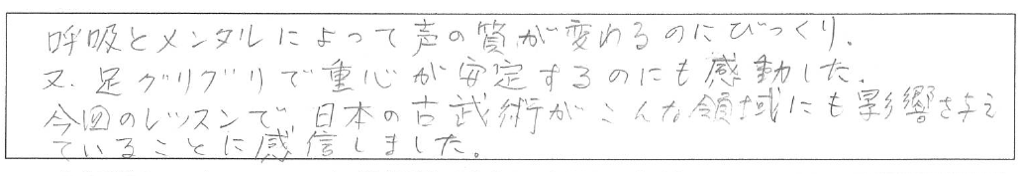 呼吸とメンタルによって声の質が変わるのにびっくり.
又、足グリグリで重心が安定するのにも感動した.
今回のレッスンで、日本の古武術がこんな領域にも影響を与え
ていることに感信しました。